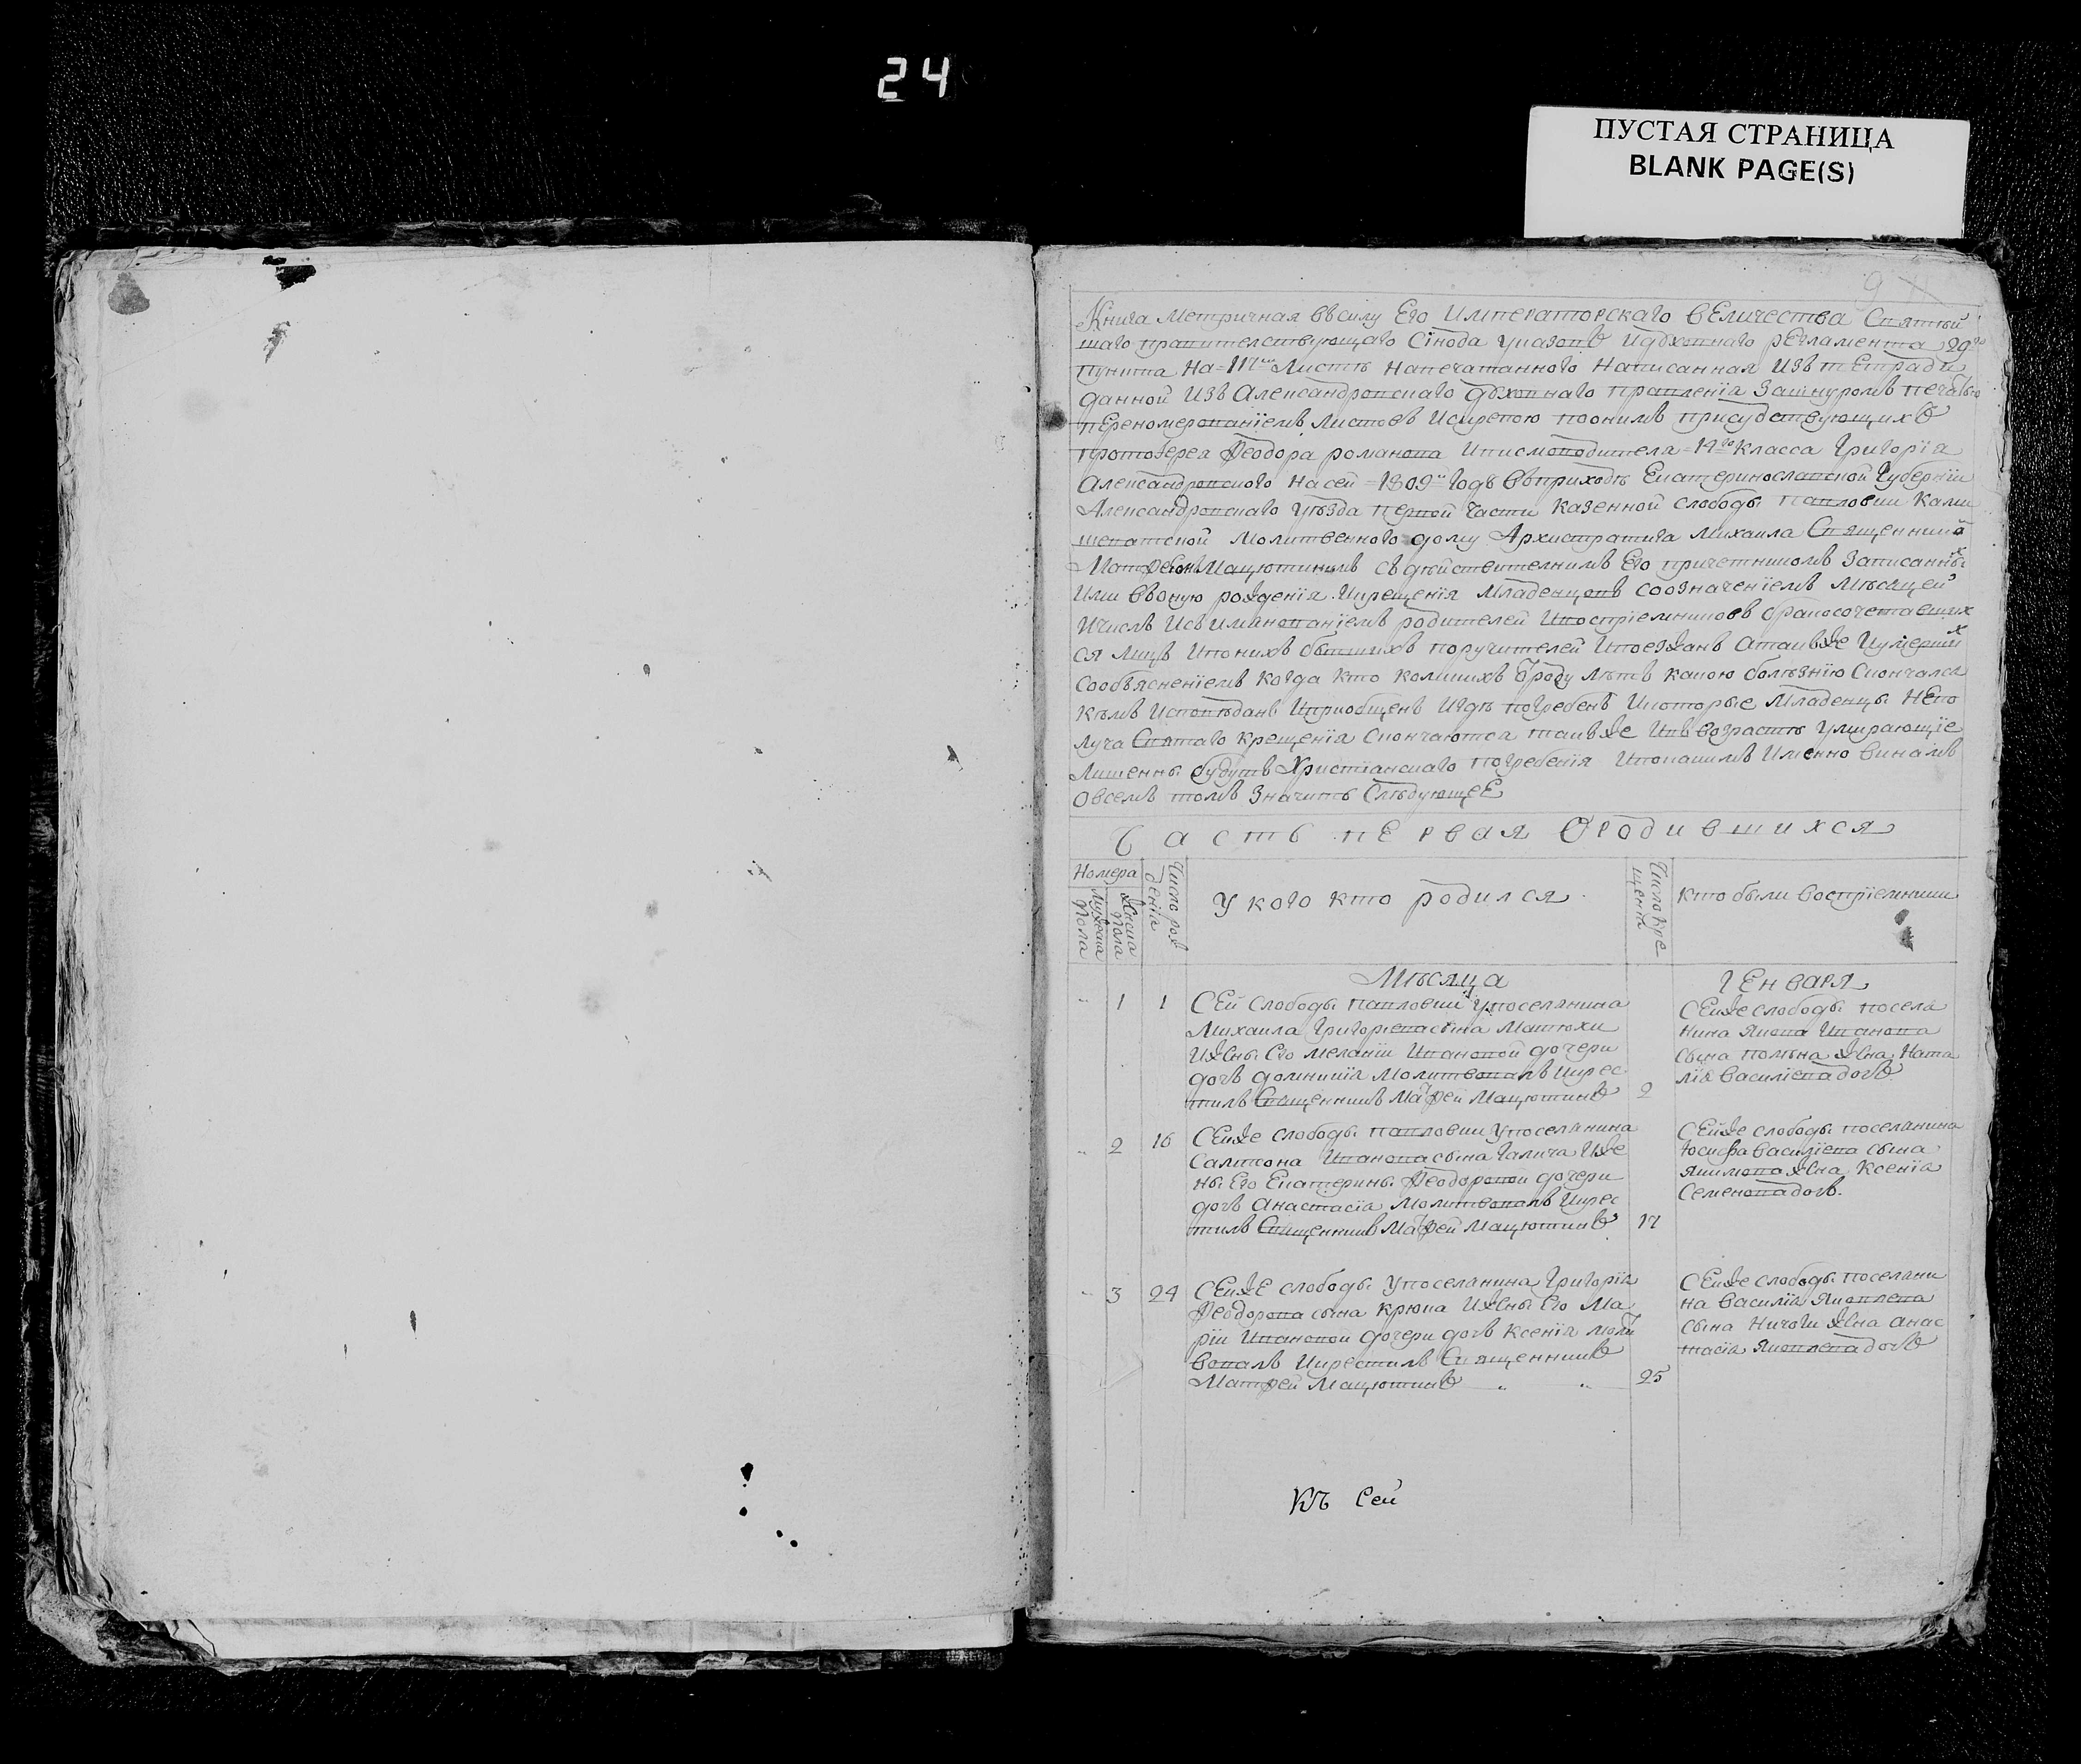 24
ПУСТАЯ СТРАНИЦА
BLANK PAGE(S)
9
Книга метричная въ силу Его Императорскаго величества Святѣй
шаго правителствующаго Сѵнода указовъ и духовнаго регламента 29го
пункта на листѣ напечатанного написанная изъ тетради
данной изъ Александровскаго духовнаго правленїя за шнуромъ печатью
переномерованїемъ листовъ и скрепою по онимъ присудствующихъ
протоїерея Феодора романова и писмоводителя 14го класса Григорїя
Александровского на сей 1809й годъ въ приходѣ Екатеринославской Губернїи
Александровскаго уѣзда первой части казенной слободы павловки Кали
молитвенного дому Архистратига Михаила Священнико
Матфеемъ Мацютинимъ съ дѣйствителнимъ Его причетникомъ записанных
ими въ оную рожденїя и крещенїя младенцовъ со означенїемъ мѣсяцей
и числъ и съ именованїемъ родителей и воспрїемниковъ бракосочетавших
ся лицъ и по нихъ бывшихъ поручителей и поезжанъ а такъже и умерших
со объясненїемъ когда кто коликихъ отроду лѣтъ какою болѣзнїю скончался
кѣмъ исповѣданъ и прїобщенъ и гдѣ погребенъ и которые младенцы непо
луча Святаго крещенїя скончаются такъже и въ возрастѣ умирающїе
лишенны будутъ Христїанскаго погребенїя и по какимъ именно винамъ
о всемъ томъ значитъ слѣдующее
Часть первая О родившихся
Номера
Мужеска пола
Женска пола
Число рож
денїя
У кого кто родился
Число кре
щенїя
кто были воспрїемники
Мѣсяца
Генваря
1 1 Сей слободы павловки у поселянина
Михаила Григорїева сына Матюхи
и жены его меланїи Ивановой дочери
дочь домникїя молитвовалъ и крес
тилъ Священникъ Матфей Мацютинъ 2
Сейже слободы поселя
нина Якова Иванова
сына жена Ната
лїя васильева дочь
2 16 Сейже слободы павловки у поселянина
Самсона Иванова сына Галича и же
ны его Екатерины Феодоровой дочери
дочь Анастасїя молитвовалъ и крес
тилъ Священникъ Матфей Мацютинъ 17
Сейже слободы поселянина
Юсифа василїева сына
Якимова жена Ксенїя
Семенова дочь.
3 24 Сейже слободы у поселянина Григорїя
Феодорова сына Крюка и жены его Ма
рїи Ивановой дочери дочь Ксенїя молит
вовалъ и крестилъ Священникъ
Матфей Мацютинъ 25
Сейже слободы поселяни
на василїя Яковлева
сына жена анас
тасїя Яковлева дочь
Къ сей